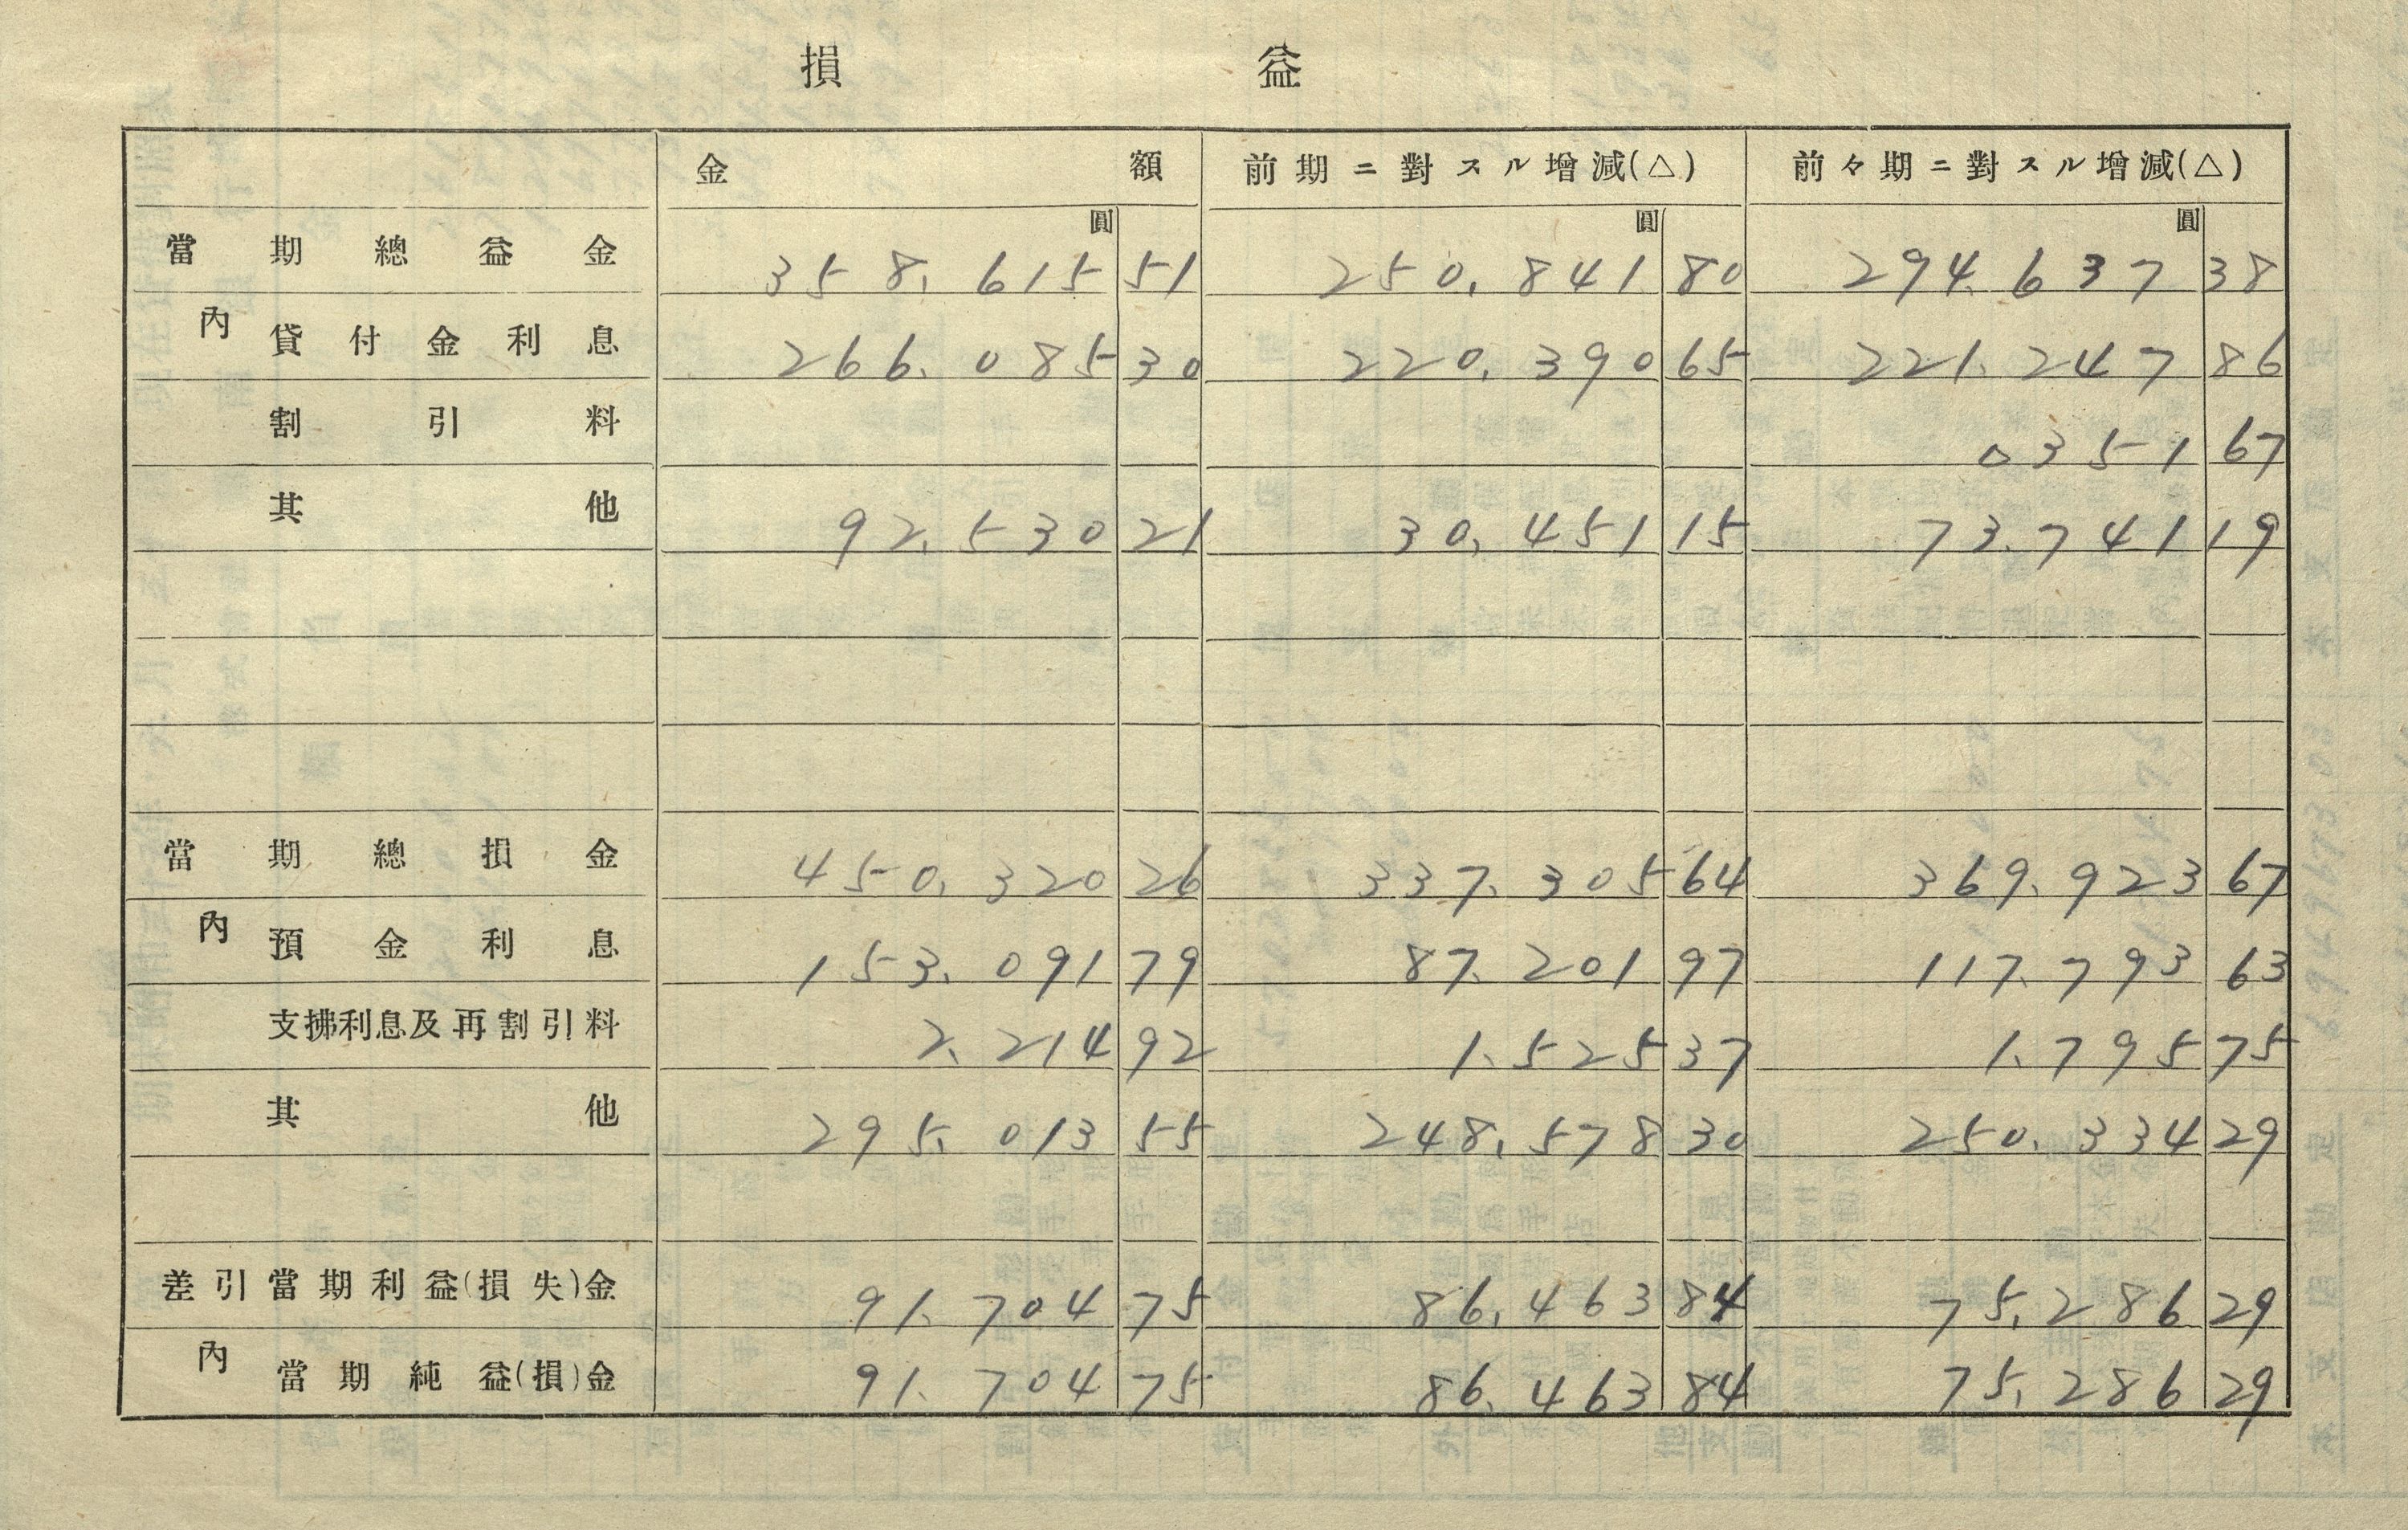 損益
金額 前期ニ對スル增減(△) 前々期ニ對スル增減(△)
圓 圓 圓
當期總益金 358,615 51 250,841 80 294,637 38
內 貸付金利息 266,085 30 220,390 65 221,247 86
割引料 △351 67
其他 92,530 21 30,451 15 73,741 19
當期總損金 450,320 26 337,305 64 369,923 67
內 預金利息 153,091 79 87,201 97 117,793 63
支拂利息及再割引料 2,214 92 1,525 37 1,795 75
其他 295,013 55 248,578 30 250,334 29
差引當期利益(損失)金 91,704 75 86,463 84 75,286 29
內 當期純益(損)金 91,704 75 86,463 84 75,286 29